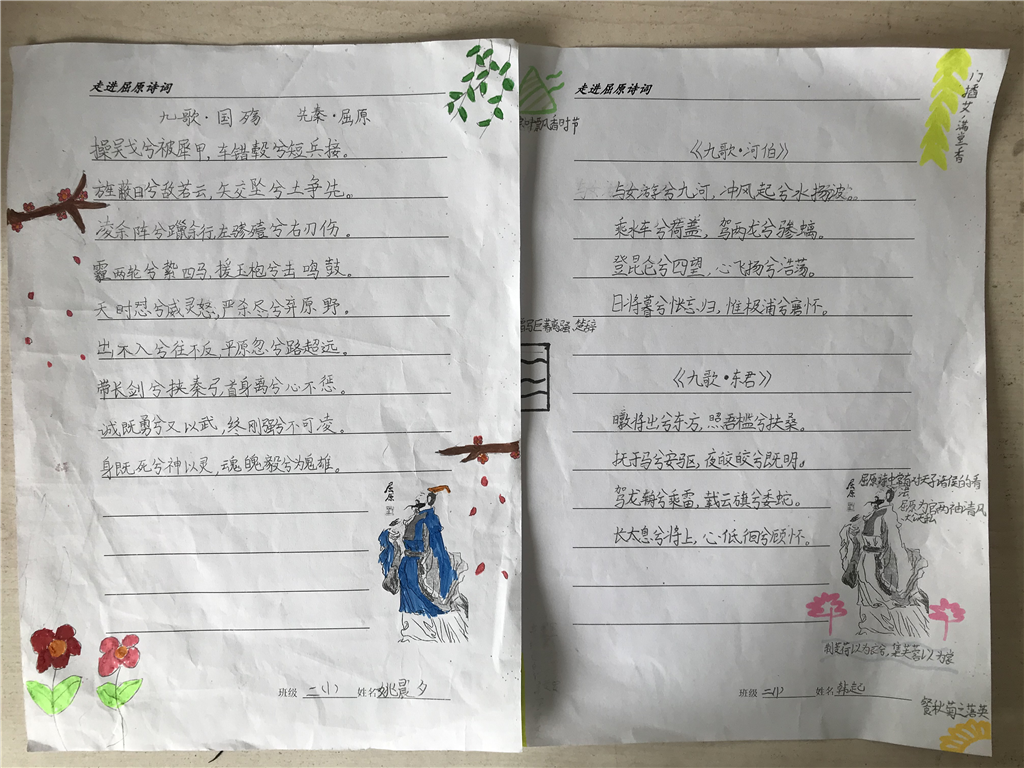 走进屈原诗词
九歌·国殇 先秦·屈原
操吴戈兮被犀甲，车错毂兮短兵接。
旌蔽日兮敌若云，矢交坠兮士争先。
凌余阵兮躐余行，左骖殪兮右刃伤。
霾两轮兮絷四马，援玉枹兮击鸣鼓。
天时怼兮威灵怒，严杀尽兮弃原野。
出不入兮往不反，平原忽兮路超远。
带长剑兮挟秦弓，首身离兮心不惩。
诚既勇兮又以武，终刚强兮不可凌。
身既死兮神以灵，魂魄毅兮为鬼雄。
屈原
班级 二(1) 姓名 姚晨夕
走进屈原诗词
《九歌·河伯》
与女游兮九河，冲风起兮水扬波。
乘水车兮荷盖，驾两龙兮骖螭。
登昆仑兮四望，心飞扬兮浩荡。
日将暮兮怅忘归，惟极浦兮寤怀。
《九歌·东君》
暾将出兮东方，照吾槛兮扶桑。
抚予马兮安驱，夜皎皎兮既明。
驾龙辀兮乘雷，载云旗兮委蛇。
长太息兮将上，心低徊兮顾怀。
屈原
屈原为官两袖清风
餐秋菊之落英
班级 二(1) 姓名 韩起